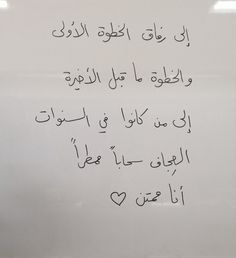 إلى رفاق الخطوة الأولى
والخطوة ما قبل الأخيرة
إلى من كانوا في السنوات
العِجاف سحاباً ممطراً
أنا ممتن ♡